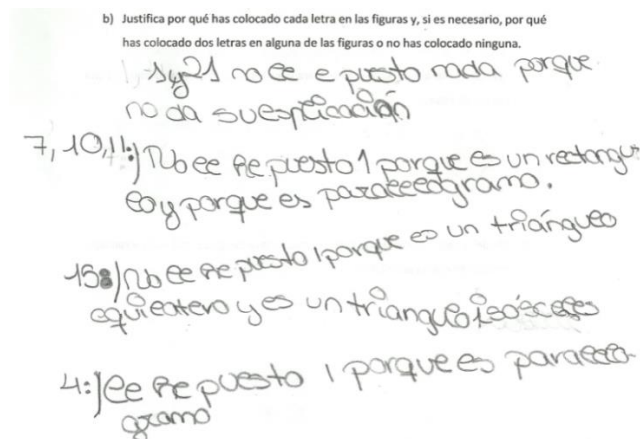 b) Justifica por qué has colocado cada letra en las figuras y, si es necesario, por qué
has colocado dos letras en alguna de las figuras o no has colocado ninguna.
1 y 21 no le e puesto nada porque
no da su esplicación
7, 10, 11:) No le he puesto 1 porque es un rectangu
lo y porque es paralelogramo.
15:) No le he puesto 1 porque es un triángulo
equilatero y es un triangulo isósceles
4:) le he puesto 1 porque es paralelo
gramo